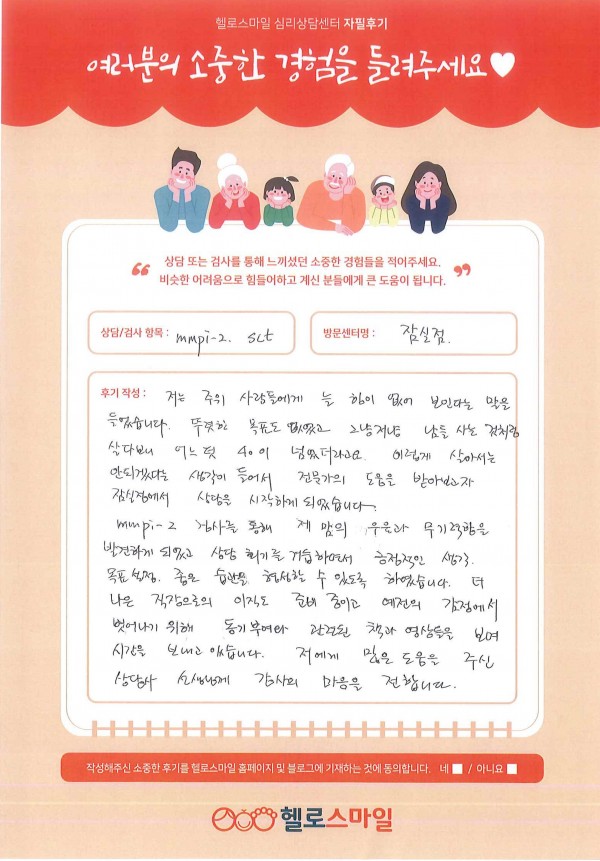 헬로스마일 심리상담센터 자필후기
여러분의 소중한 경험을 들려주세요♥
“ 상담 또는 검사를 통해 느끼셨던 소중한 경험들을 적어주세요.
비슷한 어려움으로 힘들어하고 계신 분들에게 큰 도움이 됩니다. ”
상담/검사 항목 : mmpi-2. sct
방문센터명 : 잠실점.
후기 작성 : 저는 주위 사람들에게 늘 힘이 없어 보인다는 말을
들었습니다. 뚜렷한 목표도 없었고 그냥저냥 남들 사는 것처럼
살다보니 어느덧 40이 넘었더라고요. 이렇게 살아서는
안되겠다는 생각이 들어서 전문가의 도움을 받아보고자
잠실점에서 상담을 시작하게 되었습니다.
mmpi-2 검사를 통해 제 맘의 우울과 무기력함을
발견하게 되었고 상담 회기를 거듭하면서 긍정적인 생각.
목표설정. 좋은 습관을 형성할 수 있도록 하였습니다. 더
나은 직장으로의 이직도 준비 중이고 예전의 감정에서
벗어나기 위해 동기부여와 관련된 책과 영상들을 보며
시간을 보내고 있습니다. 저에게 많은 도움을 주신
상담사 선생님께 감사의 마음을 전합니다.
작성해주신 소중한 후기를 헬로스마일 홈페이지 및 블로그에 기재하는 것에 동의합니다. 네 / 아니요
헬로스마일